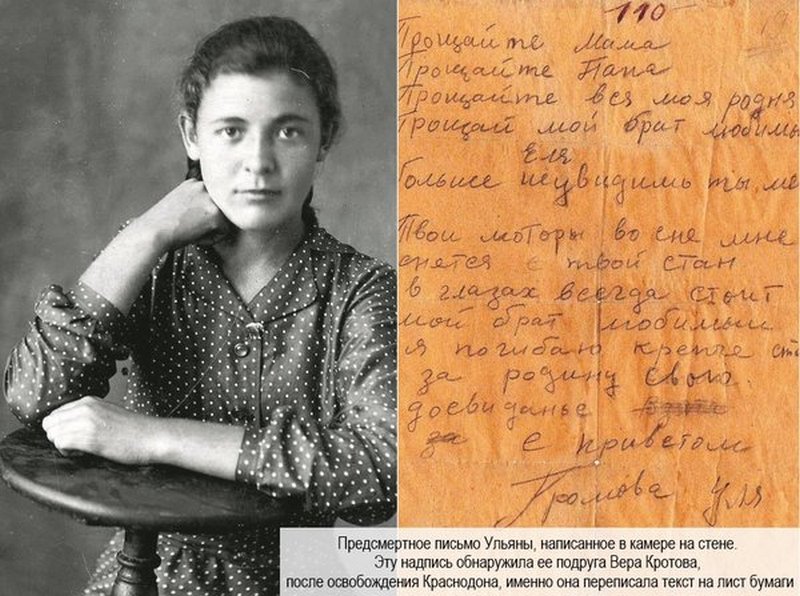 110
Прощайте Мама
Прощайте Папа
Прощайте вся моя родня
Прощай мой брат любимы
Еля
больше неувидишь ты, ме
Твои моторы во сне мне
снется с твой стан
в глазах всегда стоит
мой брат любимыи
я погибаю крепче ста
за родину свою.
досвиданье
за с приветом
Громова Уля
Предсмертное письмо Ульяны, написанное в камере на стене.
Эту надпись обнаружила ее подруга Вера Кротова,
после освобождения Краснодона, именно она переписала текст на лист бумаги